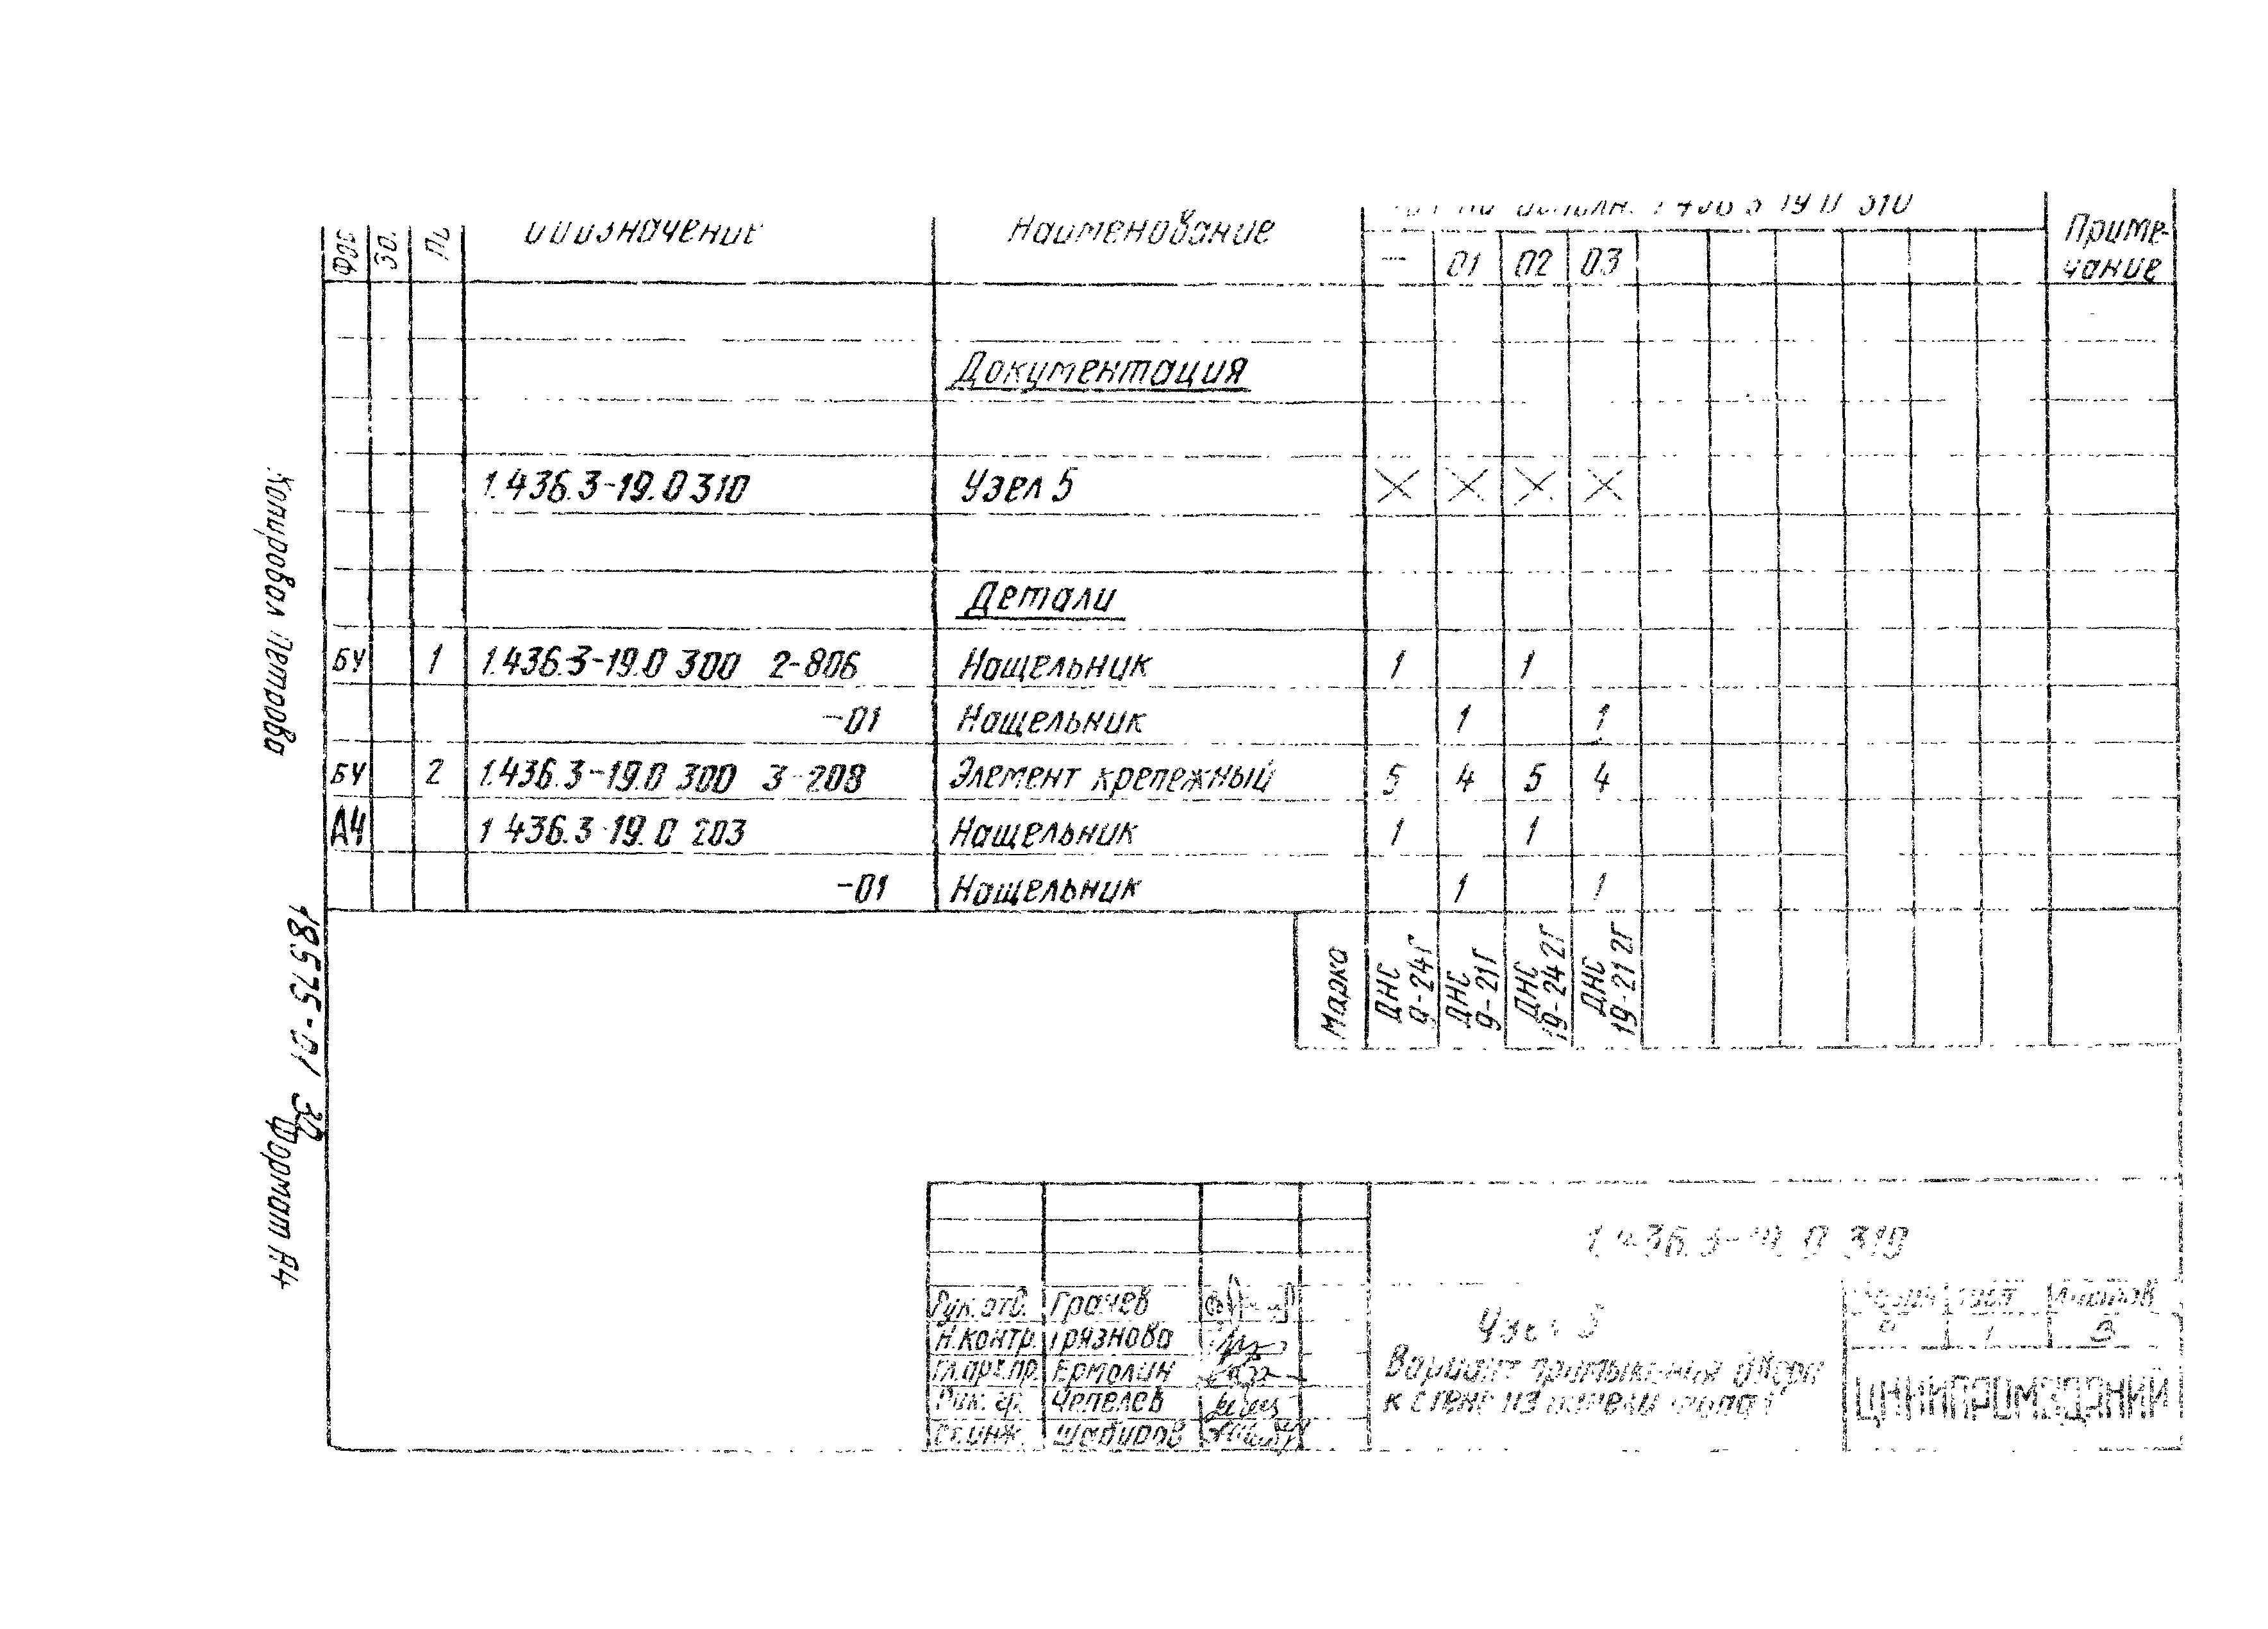 Наименование
Приме-
чание
— 01 02 03
Документация
1.436.3-19.0 310 Узел 5
Детали
БЧ 1 1.436.3-19.0 300 2-806 Нащельник 1 1
-01 Нащельник 1 1
БЧ 2 1.436.3-19.0 300 3-208 Элемент крепежный 5 4 5 4
А4 1 436.3-19.0 203 Нащельник 1 1
-01 Нащельник 1 1
Марка
ДНС 9-24Г
ДНС 9-21Г
ДНС 19-24 2Г
ДНС 19-21 2Г
Копировал Петрова
18.575-01 30
Формат А4
1.436.3-19.0 310
Рук.отд. Грачев
Н.контр. Грязнова
Гл.арх.пр. Ермолин
Рук. гр. Чепелев
ст.инж. Шабиров
Узел 5
Вариант примыкания двери
к стене из панели
Листов
3
ЦНИИПРОМЗДАНИЙ